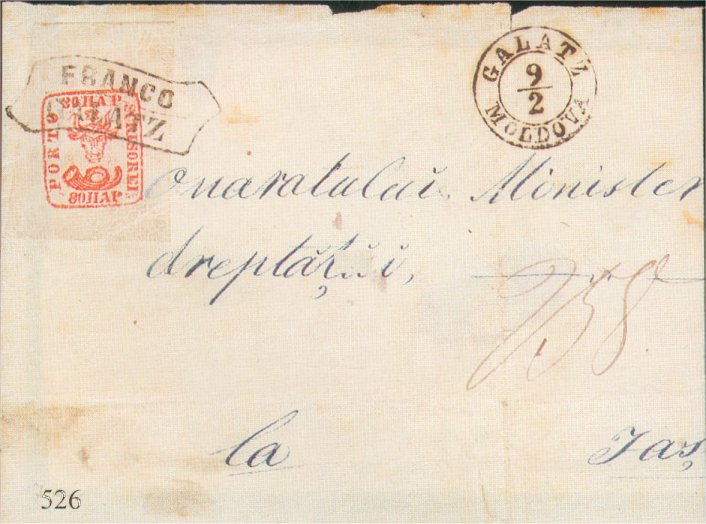 FRANCO
GALATZ
PORTO
80 ПАР
SCRISOREI
80 ПАР
GALATZ
9
2
MOLDOVA
Onaratului Minister
dreptății,
758
la Iaș
526